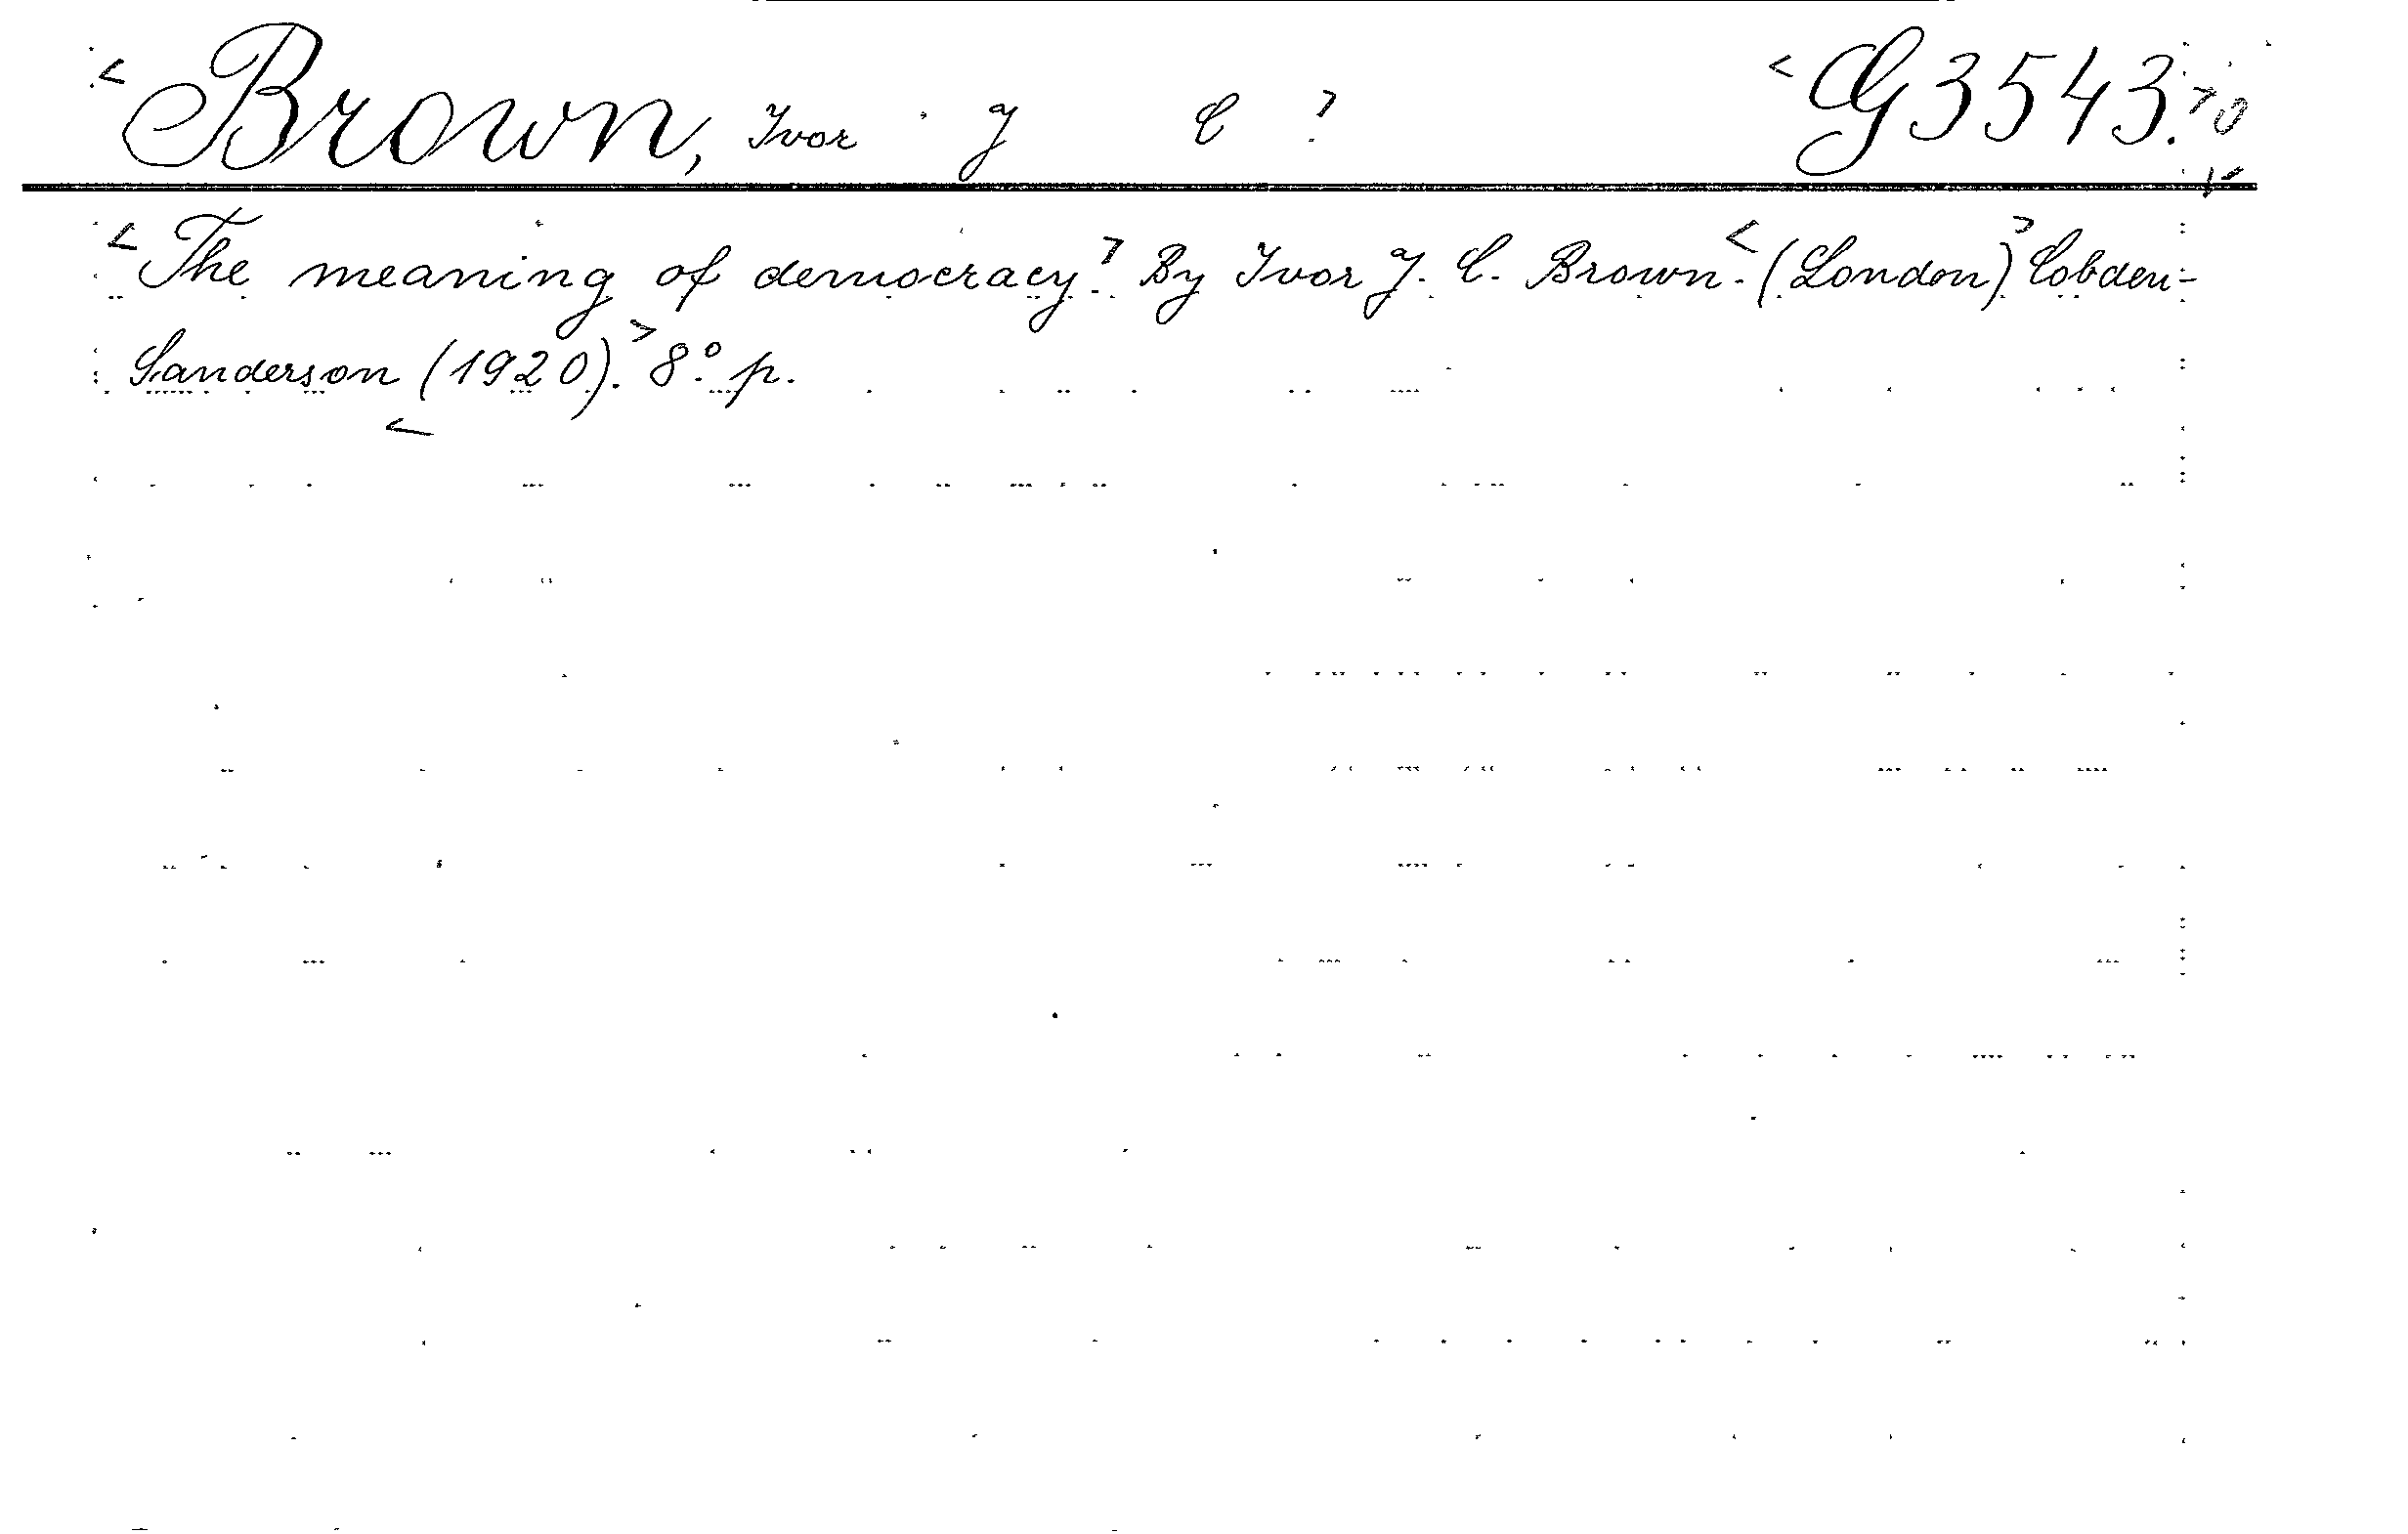 Brown, Ivor J C G3543.
The meaning of democracy. By Ivor J. C. Brown. (London) Cobden-
Sanderson (1920). 8° p.